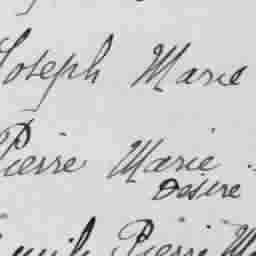 Joseph Marie
Pierre Marie
Désiré
Pierre M